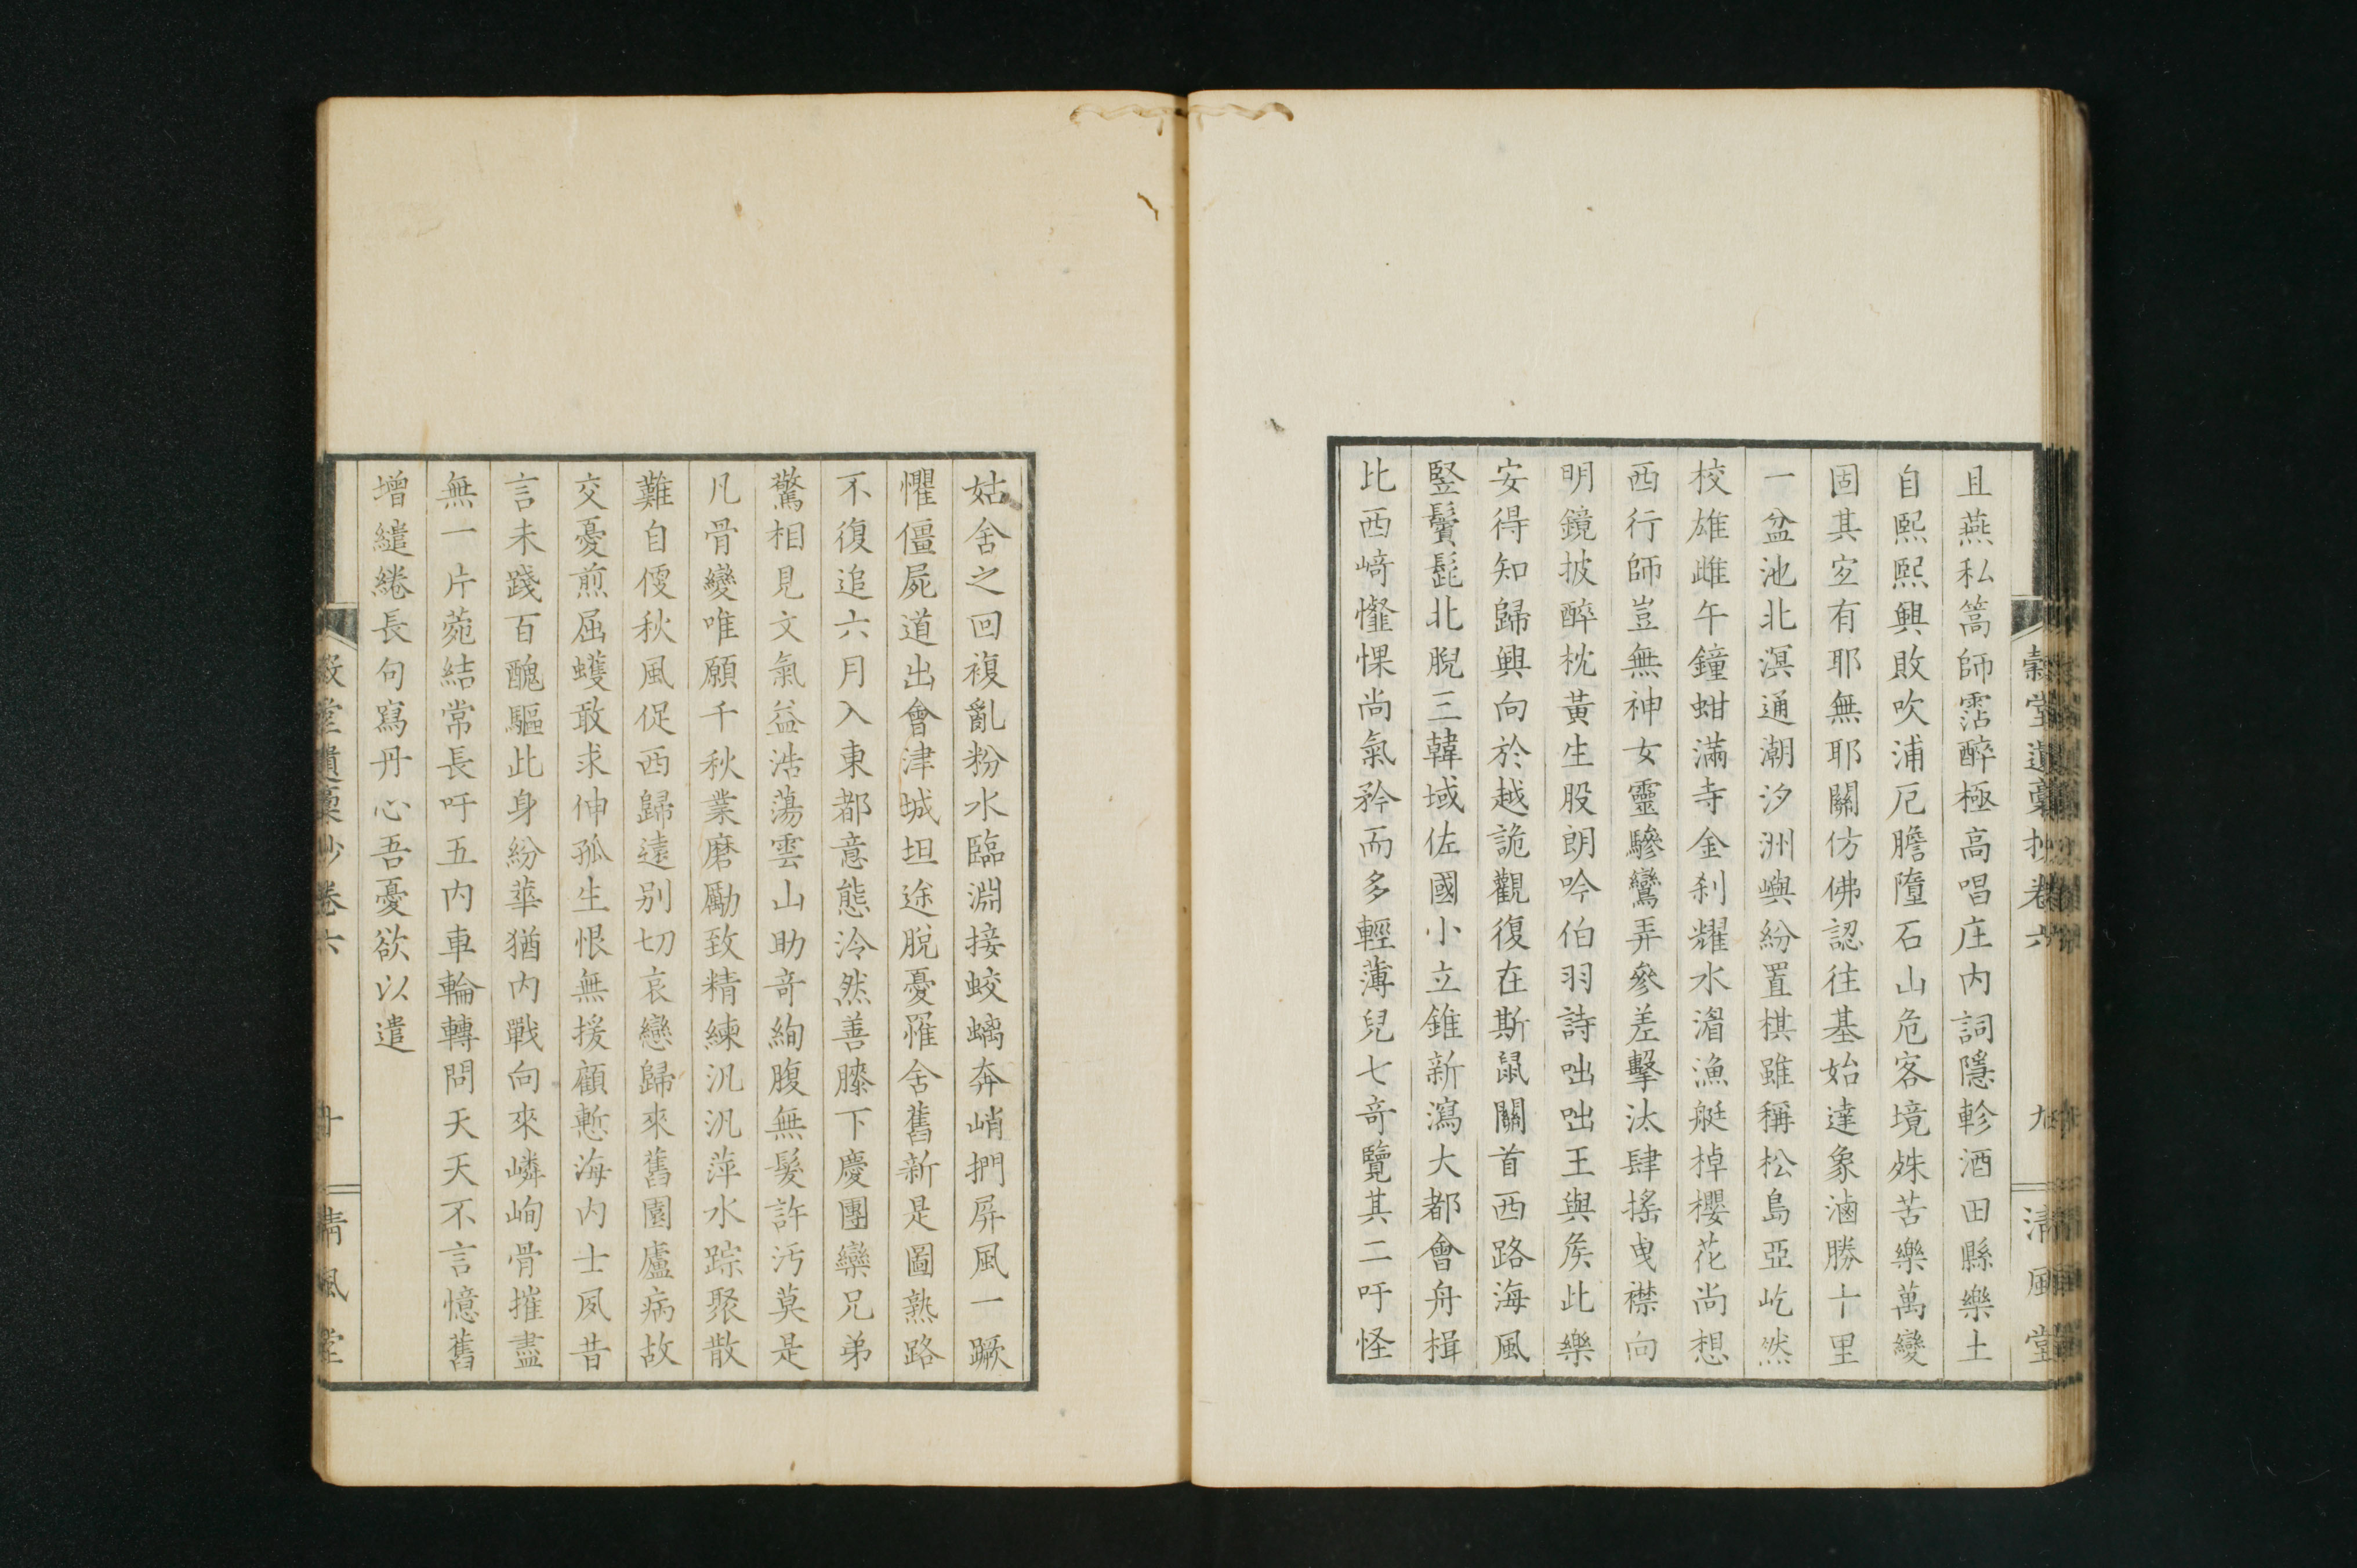 穀堂遺稾抄卷六 九 清風堂
且燕私篙師霑醉極高唱庄内詞隱軫酒田縣樂土
自熙熙興敗吹浦厄膽墮石山危客境姝苦樂萬變
固其宜有耶無耶關仿佛認往基始達象潟勝十里
一盆池北溟通潮汐洲嶼紛置棋雖稱松島亞屹然
校雄雌午鐘蚶滿寺金刹耀水湄漁艇棹櫻花尚想
西行師豈無神女靈驂鸞弄參差擊汰肆搖曳襟向
明鏡披醉枕黃生股朗吟伯羽詩咄咄王與矦此樂
安得知歸興向於越詭觀復在斯鼠關首西路海風
竪鬢髭北睨三韓域佐國小立錐新瀉大都會舟楫
比西﨑㦬惈尚氣矜而多輕薄兒七奇覽其二吁怪
姑舍之回複亂粉水臨淵接蛟螭奔峭捫屏風一蹶
懼僵屍道出會津城坦途脫憂罹舍舊新是圖熟路
不復追六月入東都意態泠然善膝下慶團欒兄弟
驚相見文氣益浩蕩雲山助奇絢腹無髮許汚莫是
凡骨變唯願千秋業磨勵致精練汎汎萍水踪聚散
難自便秋風促西歸遠別切哀戀歸來舊園廬病故
交憂煎屈蠖敢求伸孤生恨無援顧慙海内士夙昔
言未踐百醜驅此身紛華猶内戰向來嶙峋骨摧盡
無一片菀結常長吁五内車輪轉問天天不言憶舊
增繾綣長句寫丹心吾憂欲以遣
穀堂遺稾抄卷六 十 清風堂